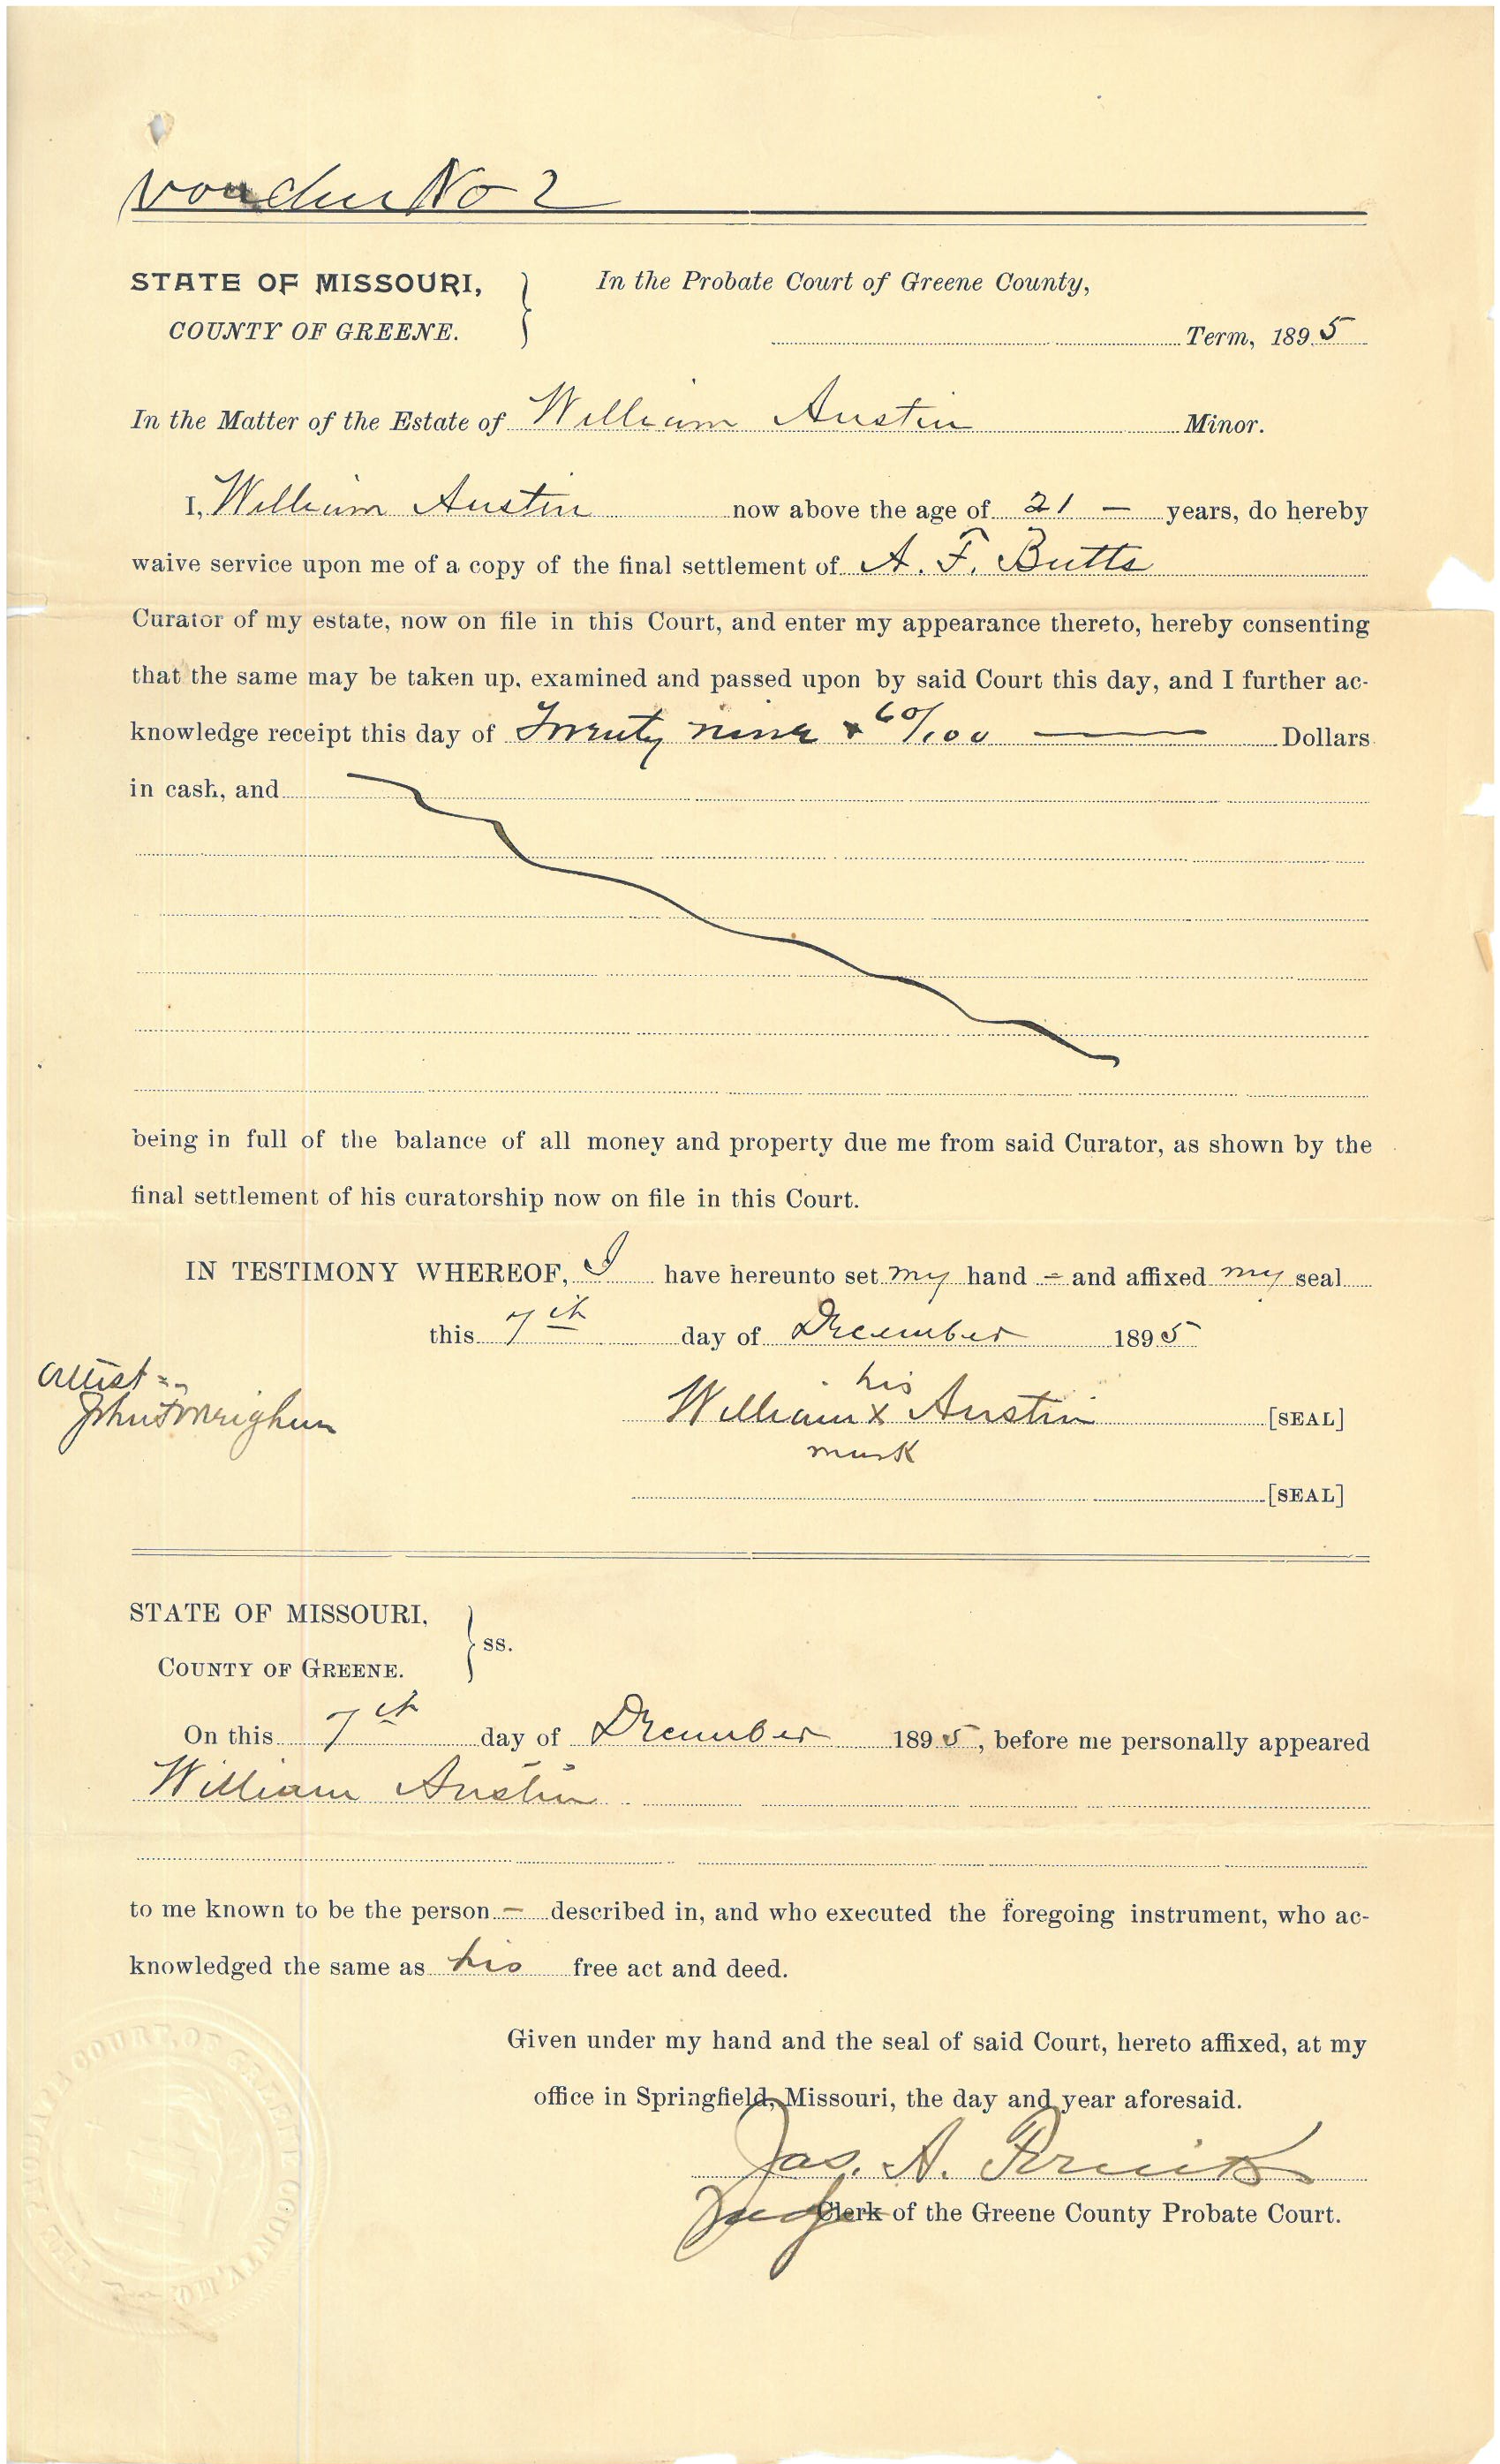 Voucher No 2
STATE OF MISSOURI,
COUNTY OF GREENE.
In the Probate Court of Greene County,
Term, 1895
In the Matter of the Estate of William Austin Minor.
I, William Austin now above the age of 21 — years, do hereby
waive service upon me of a copy of the final settlement of A. F. Butts
Curator of my estate, now on file in this Court, and enter my appearance thereto, hereby consenting
that the same may be taken up, examined and passed upon by said Court this day, and I further ac-
knowledge receipt this day of Twenty nine & 60/100 — Dollars
in cash, and
being in full of the balance of all money and property due me from said Curator, as shown by the
final settlement of his curatorship now on file in this Court.
IN TESTIMONY WHEREOF, I have hereunto set my hand - and affixed my seal
this 7th day of December 1895
Attest
his
William X Austin [SEAL]
mark
[SEAL]
STATE OF MISSOURI,
COUNTY OF GREENE.
ss.
On this 7th day of December 1895, before me personally appeared
William Austin
to me known to be the person — described in, and who executed the foregoing instrument, who ac-
knowledged the same as his free act and deed.
Given under my hand and the seal of said Court, hereto affixed, at my
office in Springfield, Missouri, the day and year aforesaid.
Jas. A.
Judge Clerk of the Greene County Probate Court.
PROBATE COURT OF GREENE COUNTY, MO.